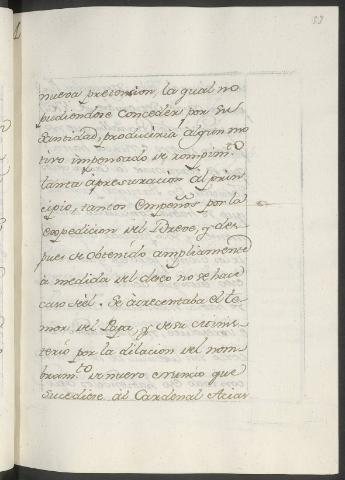 53
nueva pretension, la qual no
pudiendose conceder por Su
Santidad, produciria algun mo
tivo impensado de rompim.to
tanta apresuracion al prin
cipio, tantos empeños por la
expedicion del Breve, y des
pues de obtenido ampliamente
à medida del deseo no se hace
caso deèl. Se acrecentaba el te
mor del Papa, y de su minis
terio por la dilacion del nom
bram.to de nuevo Nuncio que
sucediese al Cardenal